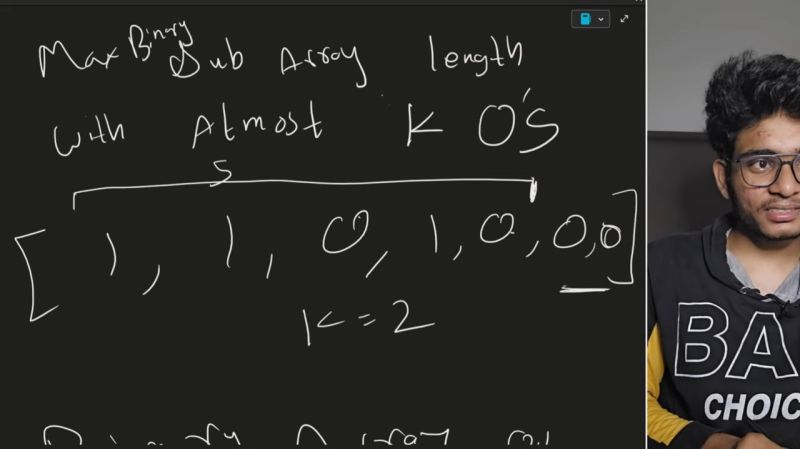 Max Binary Sub Array length
with Atmost K 0's
5
[1, 1, 0, 1, 0, 0,0]
K = 2
Binary Array
BA
CHOIC